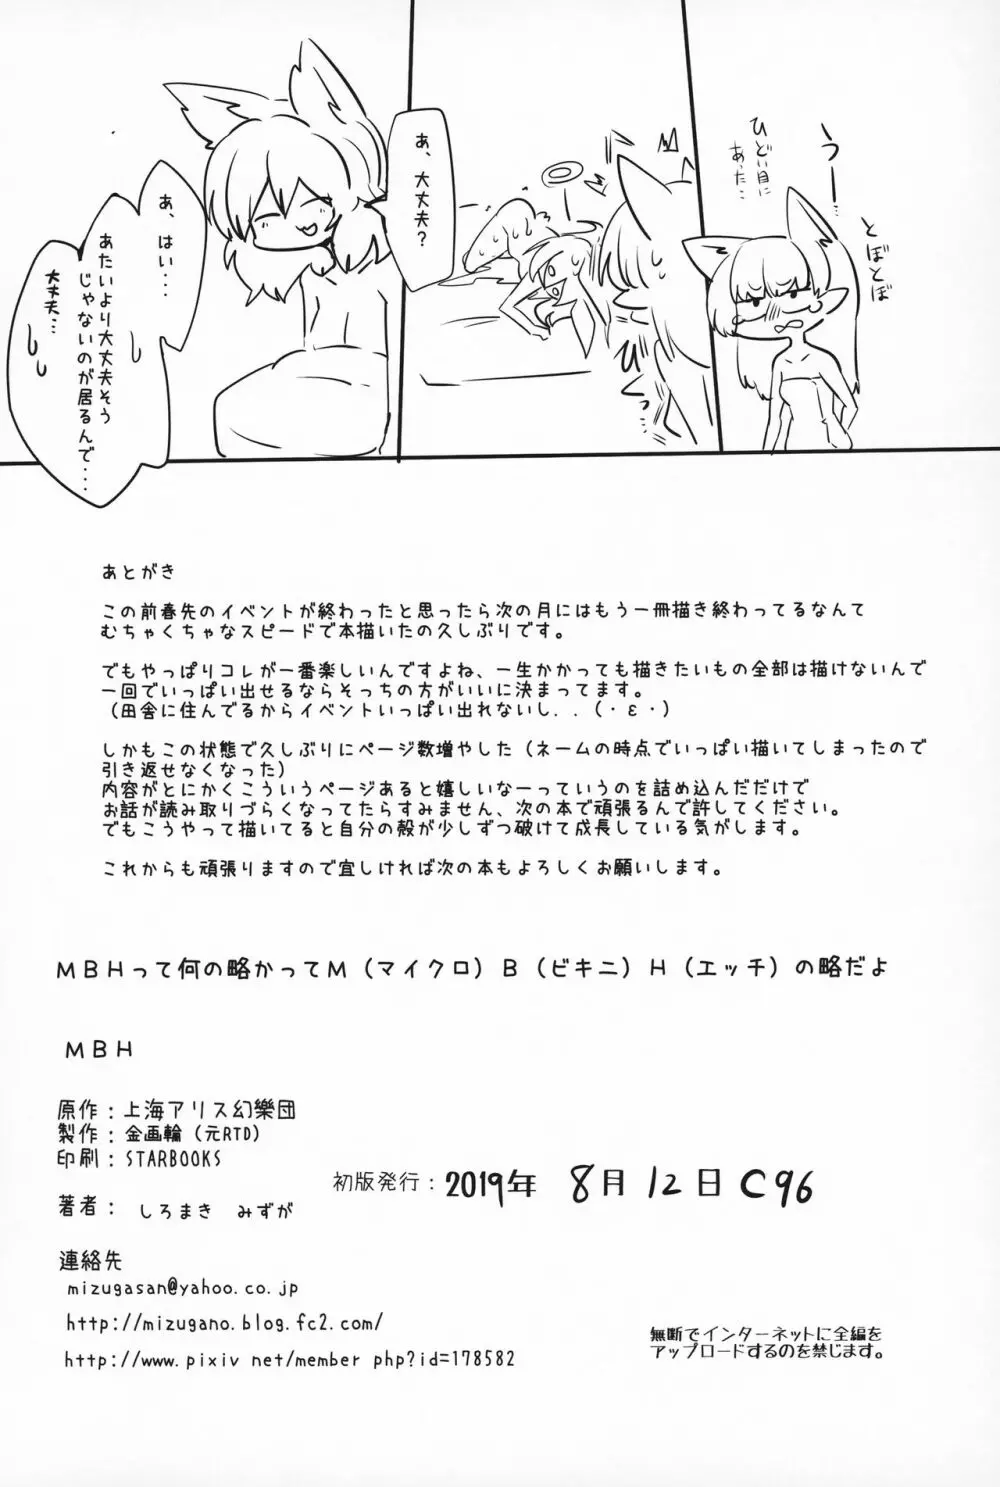 うー…
とぼとぼ
ひどい目に
あった…
びくっ
あ、大丈夫?
あ、はい...
あたいより大丈夫そう
じゃないのが居るんで....
大丈夫...
あとがき
この前春先のイベントが終わったと思ったら次の月にはもう一冊描き終わってるなんて
むちゃくちゃなスピードで本描いたの久しぶりです。
でもやっぱりコレが一番楽しいんですよね、一生かかっても描きたいもの全部は描けないんで
一回でいっぱい出せるならそっちの方がいいに決まってます。
(田舎に住んでるからイベントいっぱい出れないし..(・ε・)
しかもこの状態で久しぶりにページ数増やした(ネームの時点でいっぱい描いてしまったので
引き返せなくなった)
内容がとにかくこういうページあると嬉しいなーっていうのを詰め込んだだけで
お話が読み取りづらくなってたらすみません、次の本で頑張るんで許してください。
でもこうやって描いてると自分の殻が少しずつ破けて成長している気がします。
これからも頑張りますので宜しければ次の本もよろしくお願いします。
MBHって何の略かってM(マイクロ)B(ビキニ)H(エッチ)の略だよ
MBH
原作:上海アリス幻樂団
製作:金画輪(元RTD)
印刷:STARBOOKS
初版発行:2019年 8月12日 C96
著者: しろまき みずが
連絡先
mizugasan@yahoo.co.jp
http://mizugano.blog.fc2.com/
http://www.pixiv net/member php?id=178582
無断でインターネットに全編を
アップロードするのを禁じます。